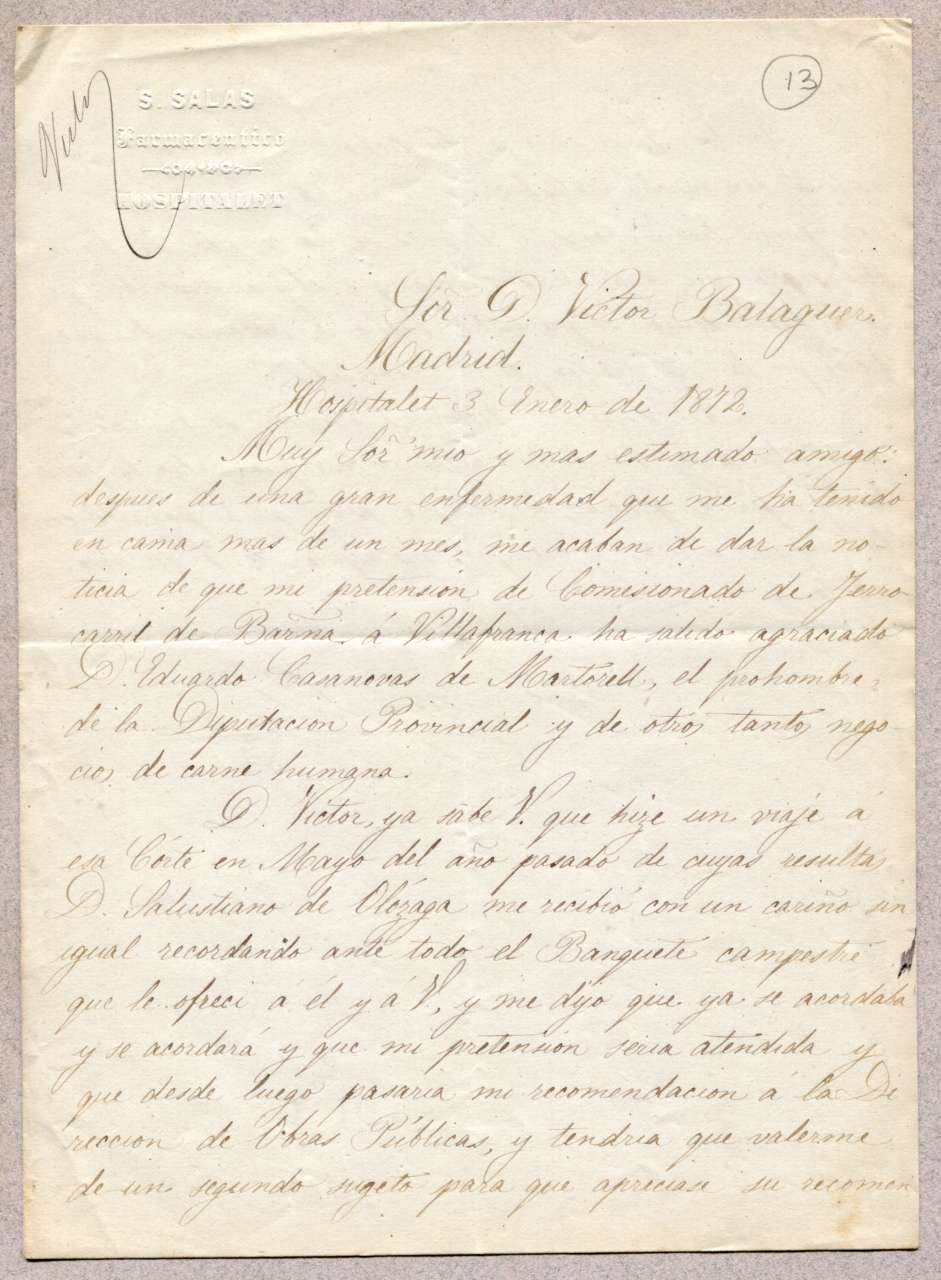 13
S. SALAS
Farmaceutico
HOSPITALET
Sor. D. Victor Balaguer.
Madrid.
Hospitalet 3 Enero de 1872.
Muy Sor mio y mas estimado amigo:
despues de una gran enfermedad que me ha tenido
en cama mas de un mes, me acaban de dar la no-
ticia de que mi pretensión de Comisionado de Ferro-
carril de Barña á Villafranca ha salido agraciado
D. Eduardo Casanovas de Martorell, el prohombre
de la Diputacion Provincial y de otros tantos nego-
cios de carne humana.
D. Victor, ya sabe V. que hize un viaje á
esa Córte en Mayo del año pasado de cuyas resultas
D. Salustiano de Olózaga me recibió con un cariño sin
igual recordando ante todo el Banquete campestre
que le ofreci á él y á V, y me dijo que ya se acordaba
y se acordará y que mi pretension seria atendida y
que desde luego pasaria mi recomendacion á la Di
reccion de Obras Públicas, y tendria que valerme
de un segundo sugeto para que apreciase su recomen